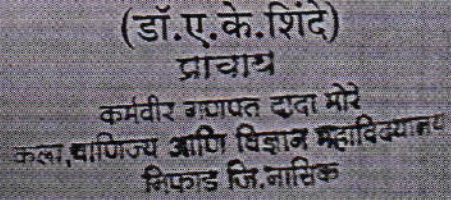 (डॉ.ए.के.शिंदे)
प्राचार्य
कर्मवीर गणपत दादा मोरे
कला,वाणिज्य आणि विज्ञान महाविद्यालय
निफाड जि.नासिक